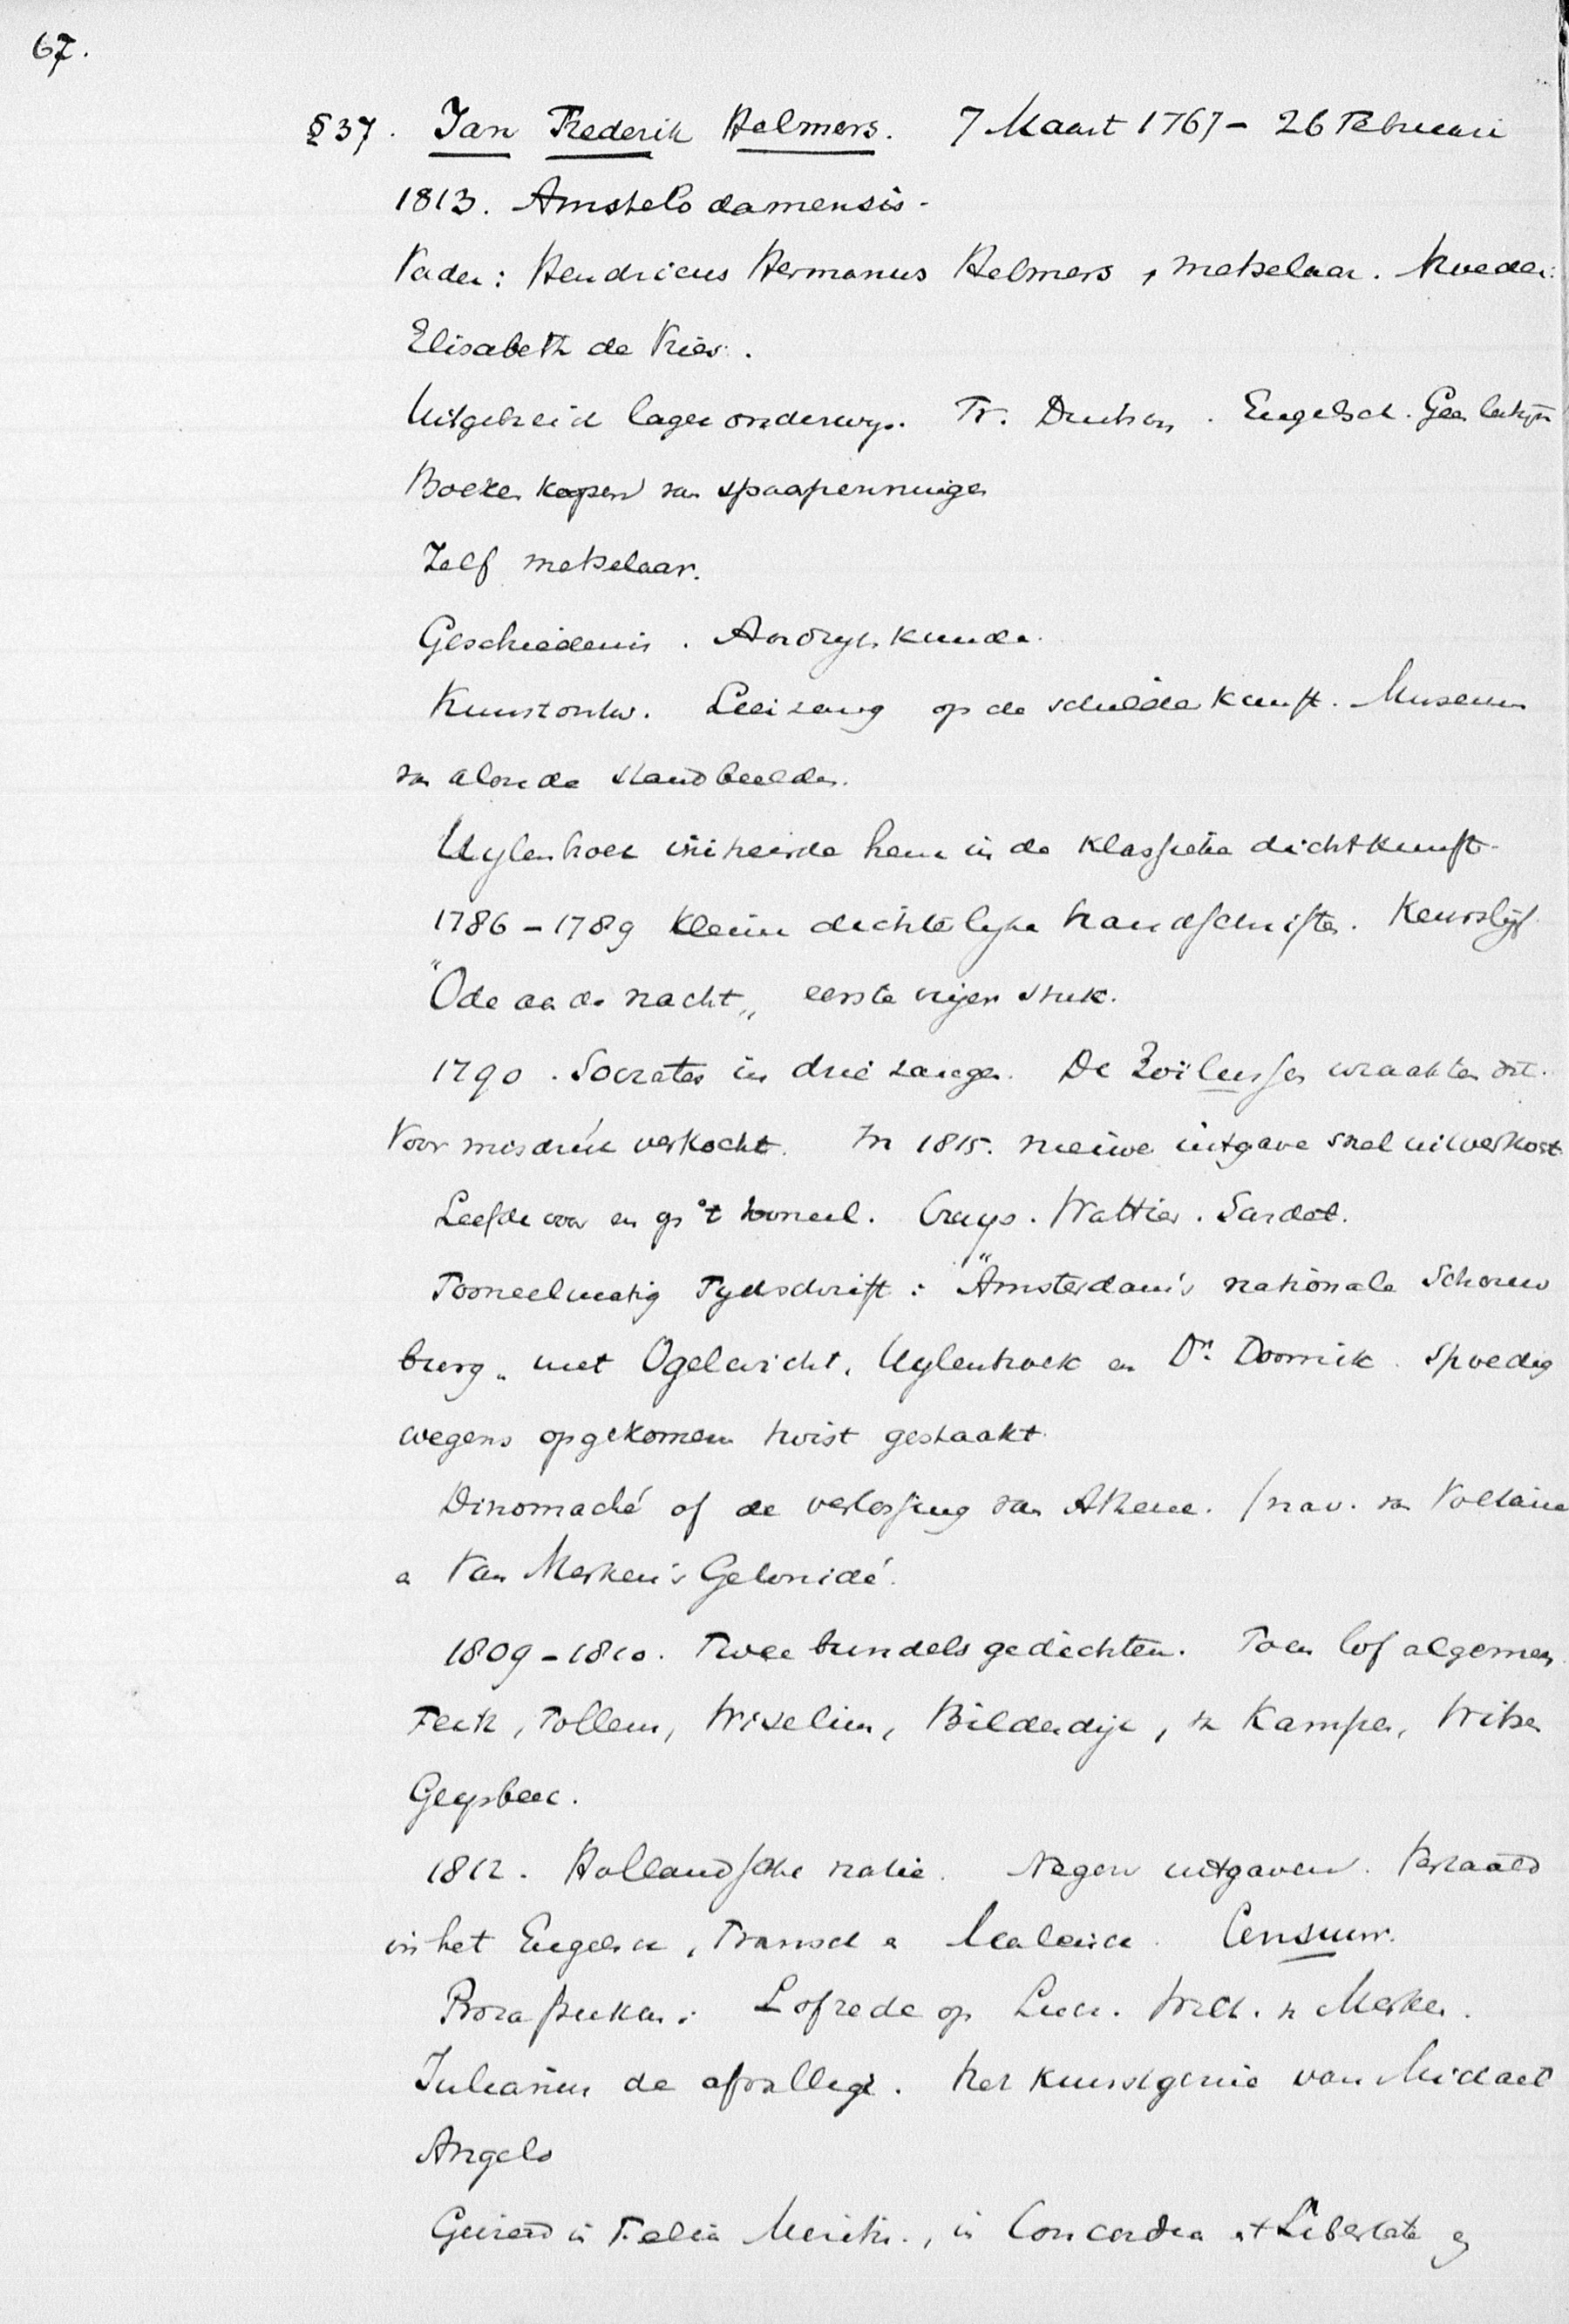 67.
§ 37. Jan Frederik Helmers. 7 Maart 1767 - 26 Februari
1813. Amstelodamensis.
Vader: Hendricus Hermanus Helmers, metselaar. Moeder:
Elisabeth de Vries.
Uitgebreid lager onderwijs. Fr. Duitsch. Engelsch. Geen latijn
Boeken koopen van spaarpenningen
Zelf metselaar.
Geschiedenis. Aardrijkskunde.
Kunstontw. Leerzang op de schilderkunst. Museum
van aloude standbeelden.
Uylenbroek initieerde hem in de klassieke dichtkunst.
1786 - 1789 kleine dichterlijke handschriften. Keurslijf.
"Ode aan de nacht" eerste eigen stuk.
1790. Socrates in drie zangen. De Zoïlussen wraakten dit.
Voor misdruk verkocht. In 1815. nieuwe uitgave snel uitverkocht.
Leefde voor en op 't tooneel. Cruys. Wattier. Sardet.
Tooneelmatig Tydschrift: "Amsterdam's nationale Schouw
burg" met Ogelwicht, Uylenbroek en Dr. Doornik. Spoedig
wegens opgekomen twist gestaakt.
Dinomaché of de verlossing van Athene. (nav. van Voltaire
en Van Merken's Gelonidé.
1809 - 1810. Twee bundels gedichten. Toen lof algemeen.
Feith, Tollens, Wiselius, Bilderdijk, v. Kampen, Witsen
Geysbeek.
1812. Hollandsche natie. Negen uitgaven. Vertaald
in het Engelsch, Fransch en Maleisch. Censuur.
Prozastukken: Lofrede op Lucr. Wilh. v. Merken.
Julianus de afvallige. Het kunstgenie van Michael
Angelo
Gevierd in Felix Meritis, in Concordia et Libertate en